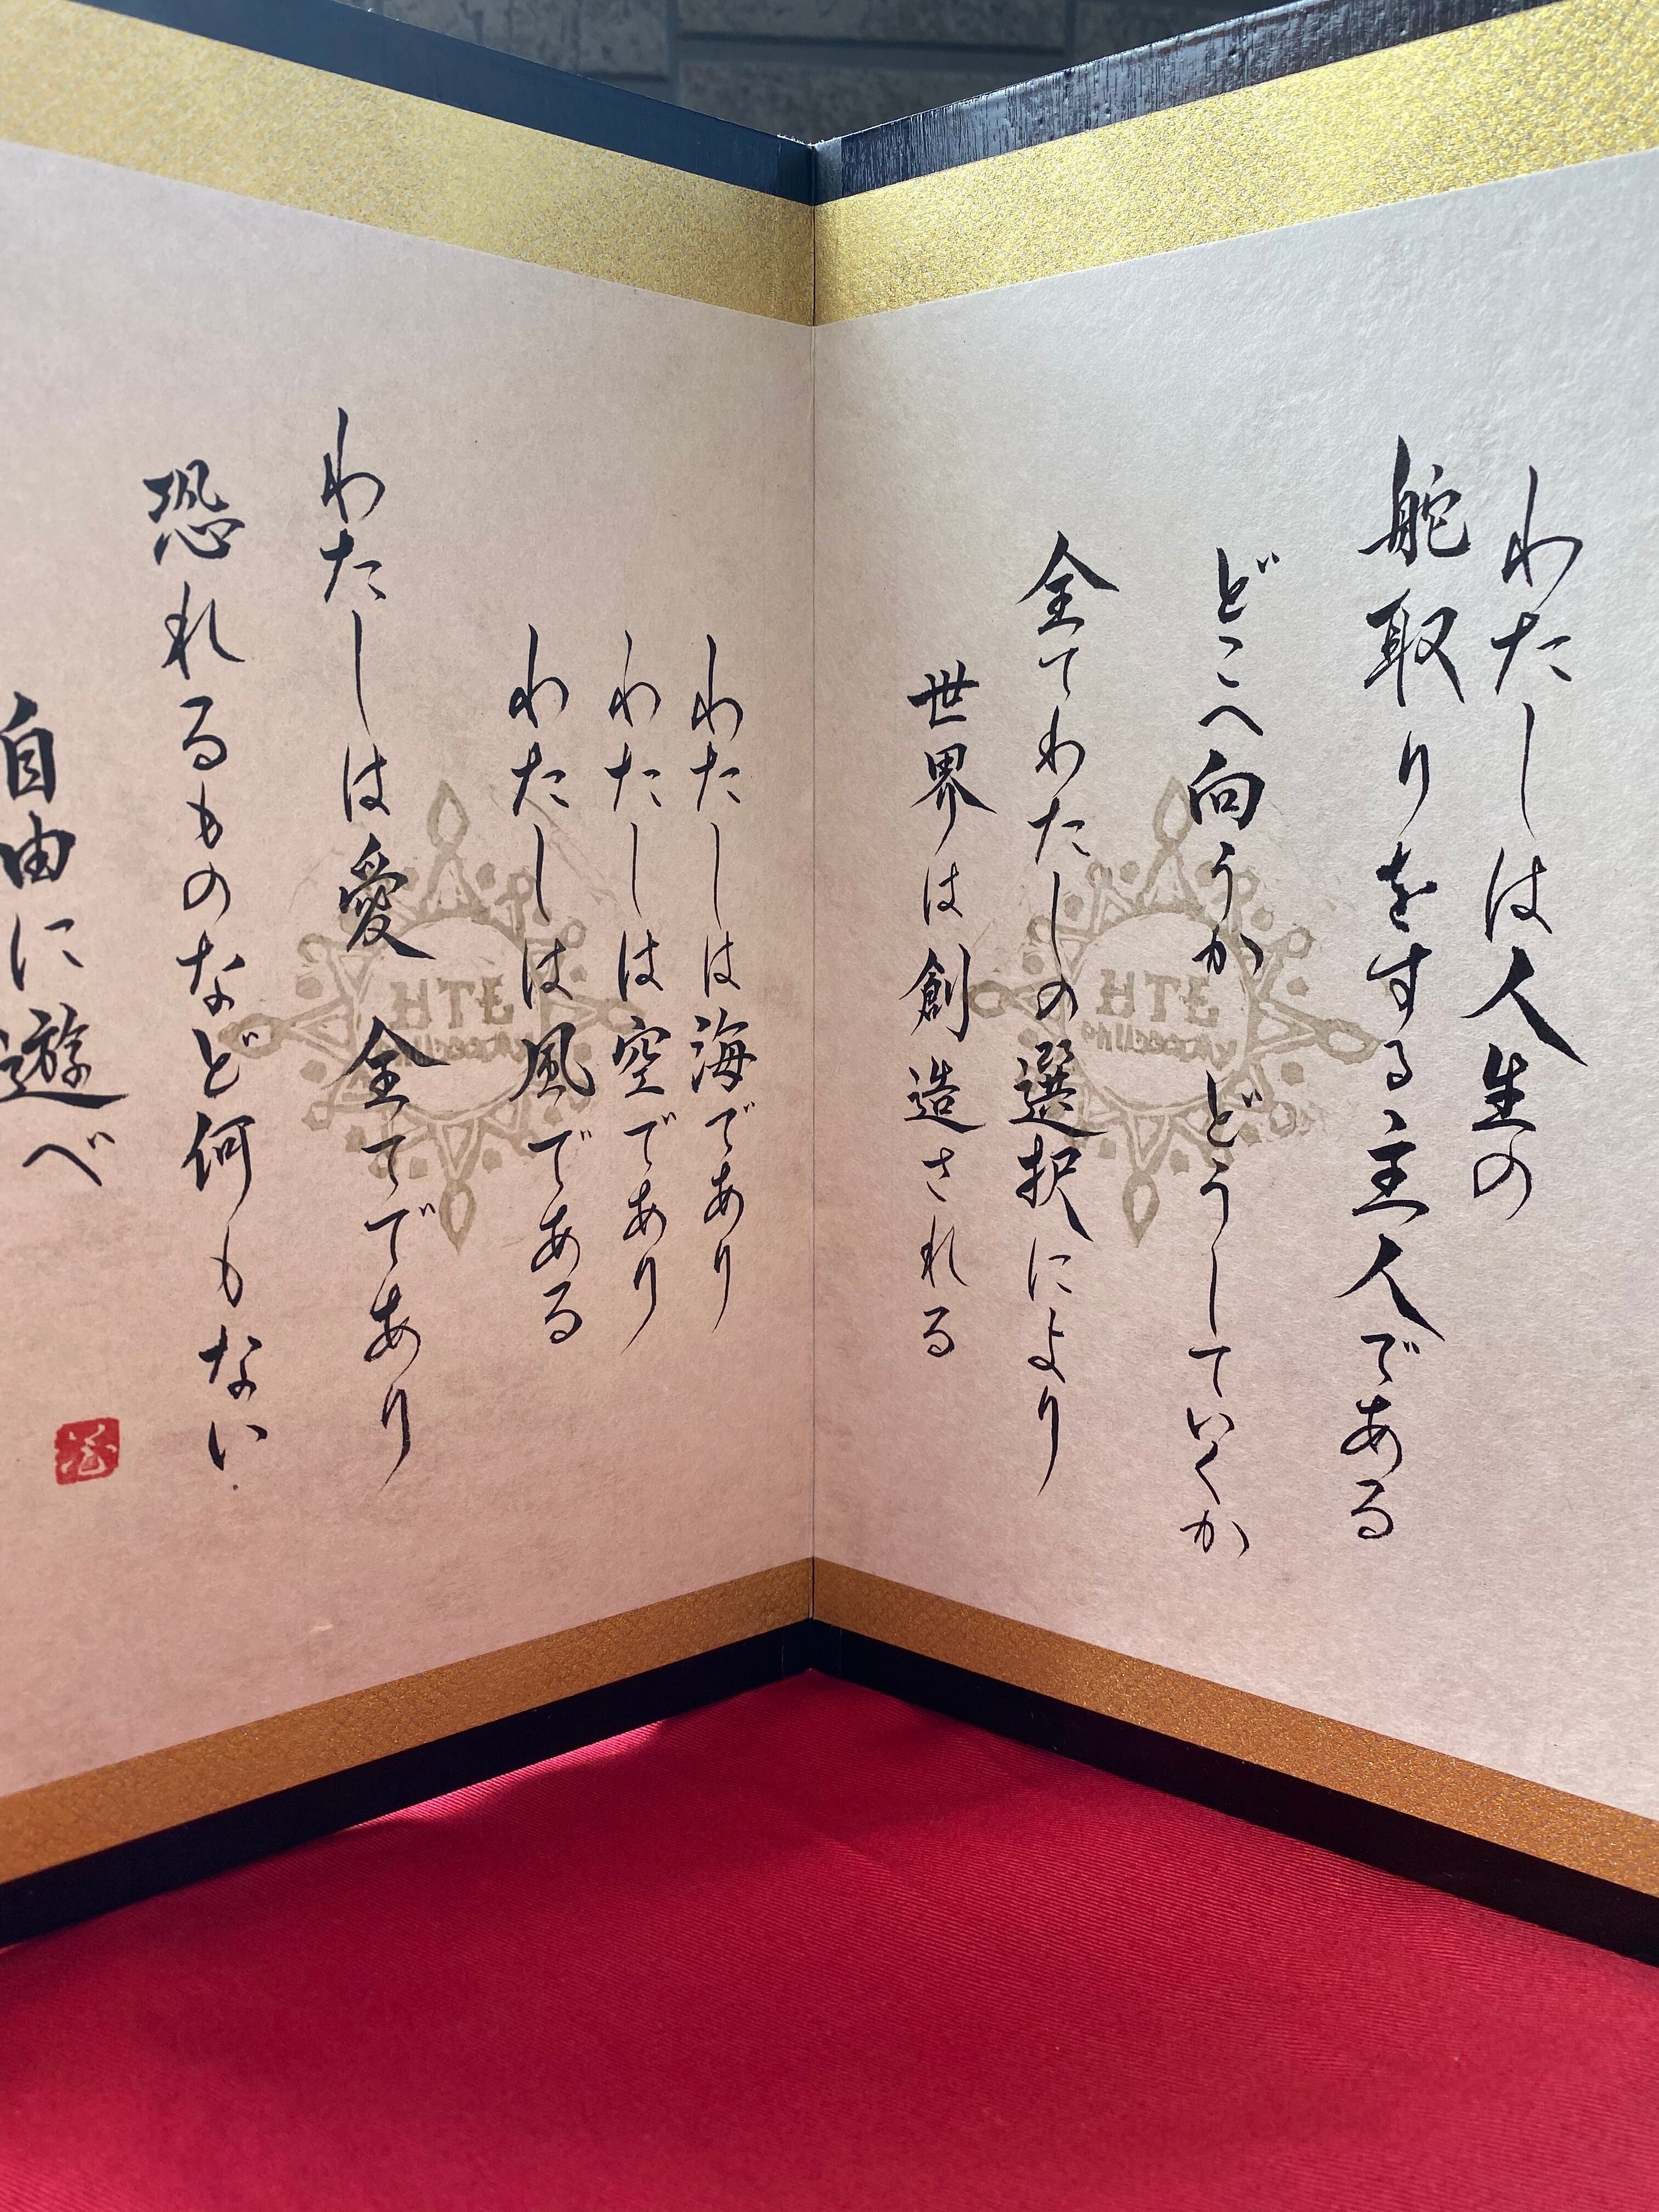 わたしは人生の
舵取りをする主人である
どこへ向うか どうしていくか
全てわたしの選択により
世界は創造される
わたしは海であり
わたしは空であり
わたしは風である
わたしは愛 全てであり
恐れるものなど何もない
自由に遊べ
HTE
HTE